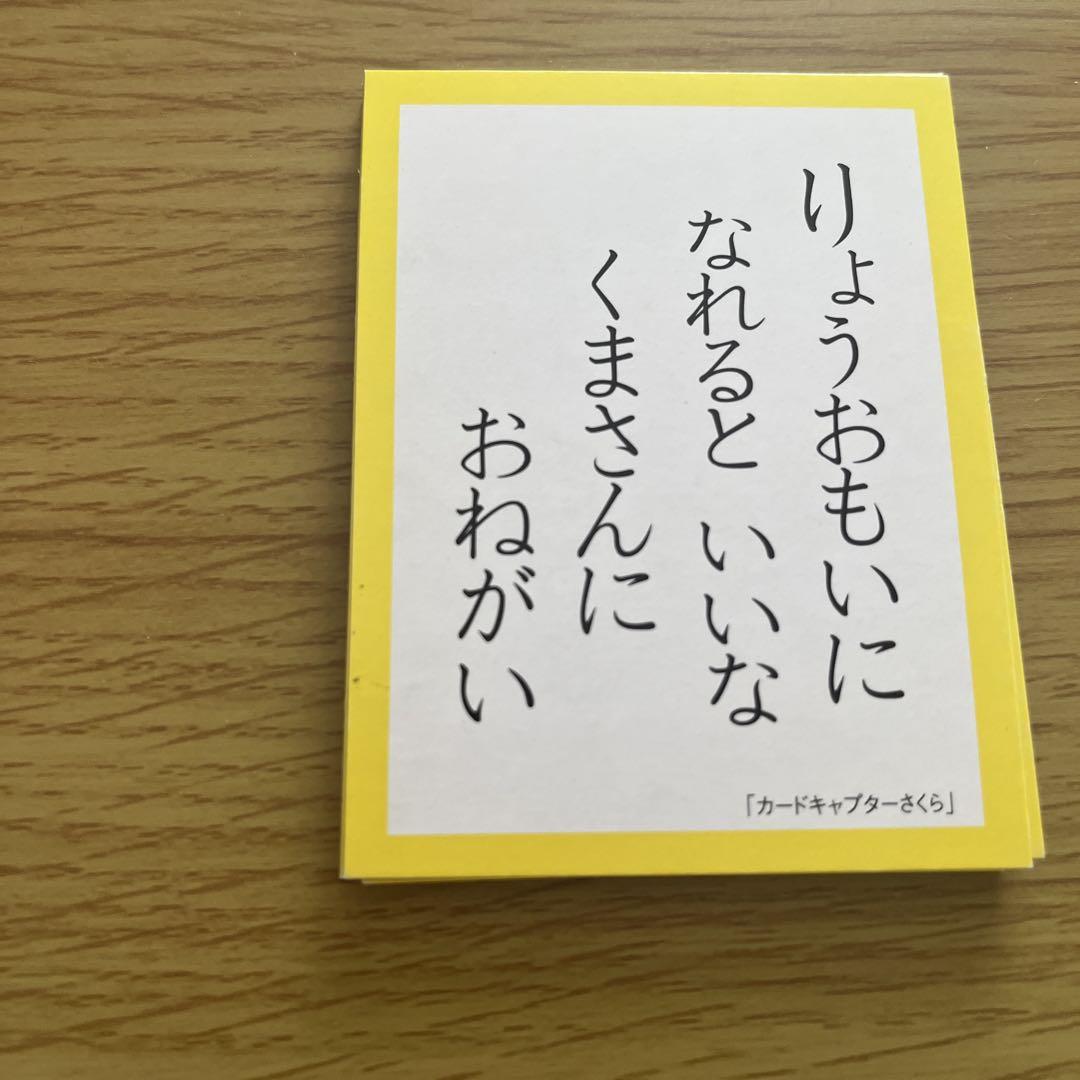 りょうおもいに
なれると いいな
くまさんに
おねがい
「カードキャプターさくら」